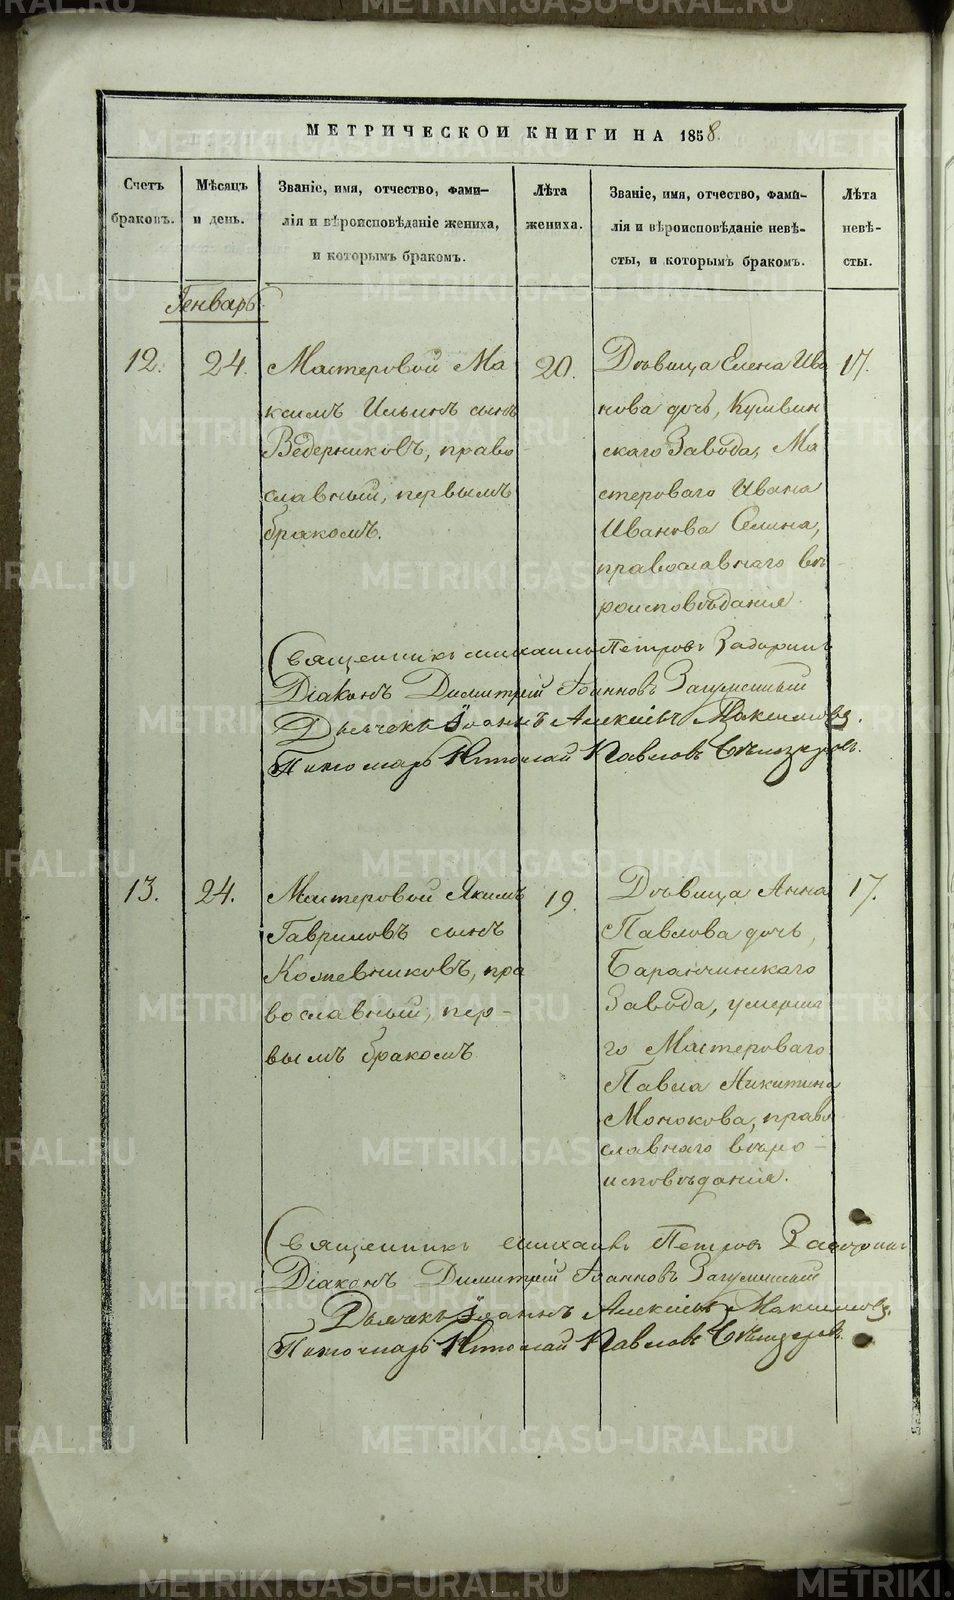 МЕТРИЧЕСКОЙ КНИГИ НА 1858.
Счетъ браковъ.
Мѣсяцъ и день.
Званіе, имя, отчество, фами-
лія и вѣроисповѣданіе жениха,
и которымъ бракомъ.
Лѣта жениха.
Званіе, имя, отчество, фами-
лія и вѣроисповѣданіе невѣ-
сты, и которымъ бракомъ.
Лѣта невѣ-
сты.
Генварь
12. 24.
Мастеровой Ма
ксимъ Ильинъ сынъ
Ведерниковъ, право
славный, первымъ
бракомъ.
20.
Дѣвица Елена Ива
нова дочь, Кушвин
скаго Завода, Ма
стероваго Ивана
Иванова Селина,
православнаго вѣ-
роисповѣданія.
17.
Священникъ Михаилъ Петровъ
Діаконъ Димитрій Іоанновъ
Дьячекъ Іоаннъ Алексіевъ Максимовъ.
Пономарь Николай Павловъ
13. 24.
Мастеровой Якимъ
Гавриловъ сынъ
Кожевниковъ, пра
вославный, пер-
вымъ бракомъ
19.
Дѣвица Анна
Павлова дочь,
Баранчинскаго
Завода, умерша
го Мастероваго
Павла Никитина
Монокова, право
славнаго вѣро-
исповѣданія.
17.
Священникъ Михаилъ Петровъ
Діаконъ Димитрій Іоанновъ
Дьячекъ Іоаннъ Алексіевъ Максимовъ.
Пономарь Николай Павловъ
METRIKI.GASO-URAL.RU